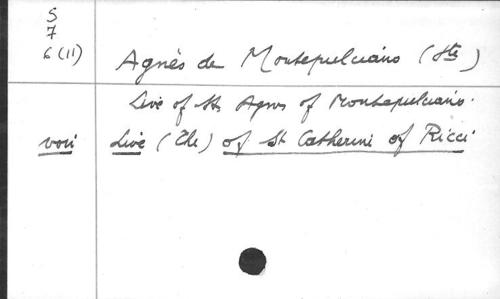 S
7
6 (11)
Agnès de Montepulciano (Ste)
Live of Ste Agnes of Montepulciano.
voir Live (The) of St Catherine of Ricci